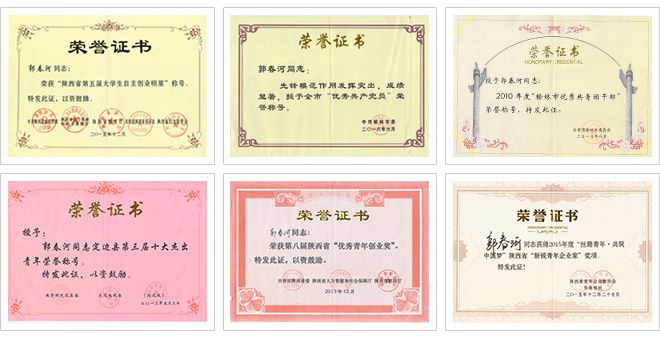 荣誉证书
郭春河同志：
荣获“陕西省第五届大学生自主创业明星”称号，
特发此证，以资鼓励。
二〇一五年十二月
荣誉证书
郭春河同志：
先锋模范作用发挥突出，成绩
显著，授予全市“优秀共产党员”荣
誉称号。
中共榆林市委
二〇一六年六月
荣誉证书
HONORARY CREDENTIAL
授予郭春河同志：
2010年度“榆林市优秀共青团干部”
荣誉称号，特发此证。
荣誉证书
授予：
郭春河同志定边县第三届十大杰出
青年荣誉称号。
特发此证，以资鼓励。
荣誉证书
郭春河同志：
荣获第八届陕西省“优秀青年创业奖”。
特发此证，以资鼓励。
共青团陕西省委 陕西省人力资源和社会保障厅
2013年12月
荣誉证书
HONORARY CREDENTIAL
郭春河同志获得2015年度“丝路青年·共筑
中国梦”陕西省“新锐青年企业家”奖项。
特发此证！
二〇一五年十二月二十七日